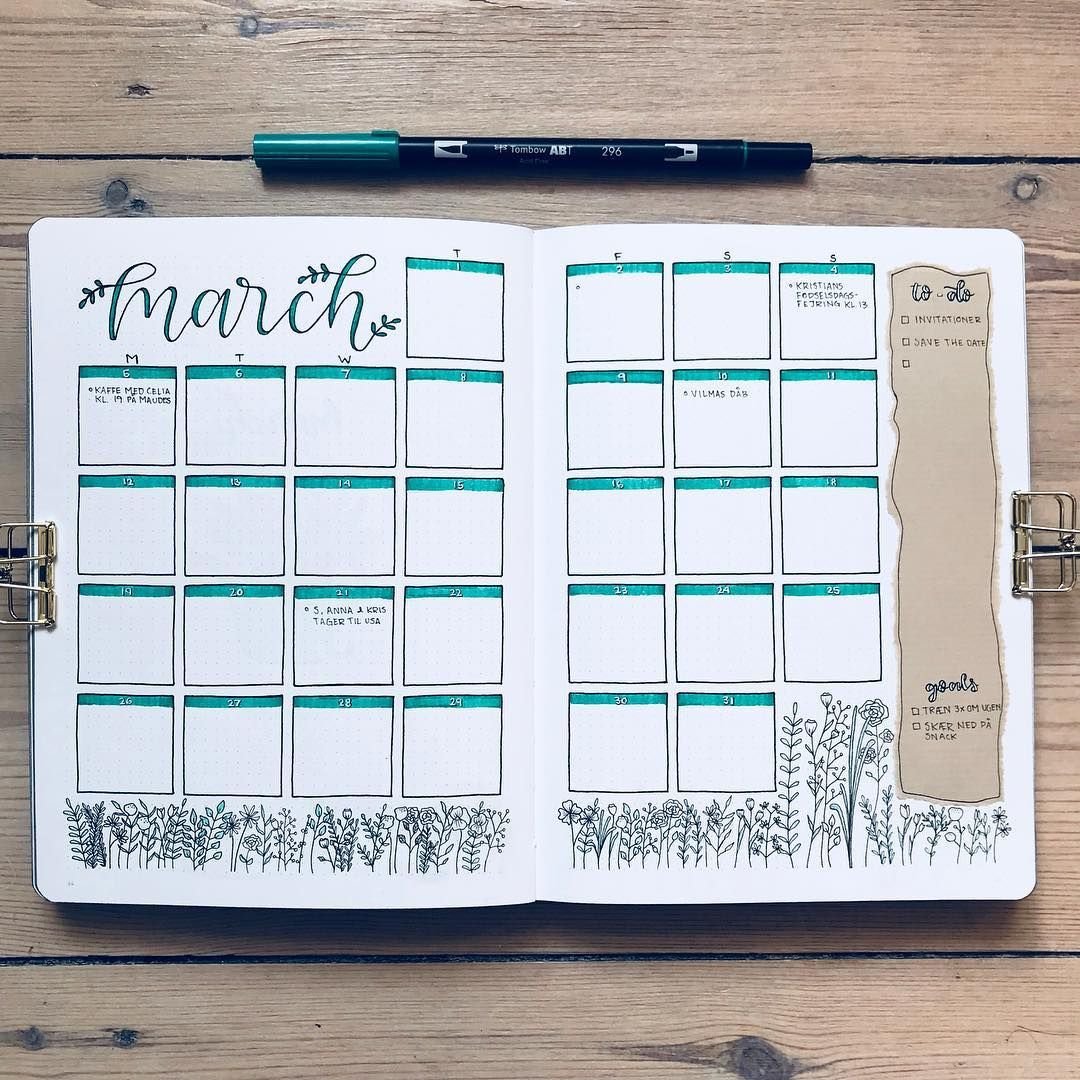 Tombow ABT 296
march
T
F
S
S
1
2
3
4
KRISTIANS
FØDSELSDAGS-
FEJRING KL.13
M
T
W
5
6
7
8
9
10
11
KAFFE MED CELIA
KL. 19 PÅ MAUDES
VILMAS DÅB
12
13
14
15
16
17
18
19
20
21
22
23
24
25
S, ANNA & KRIS
TAGER TIL USA
26
27
28
29
30
31
to-do
INVITATIONER
SAVE THE DATE
goals
TRÆN 3x OM UGEN
SKÆR NED PÅ
SNACK